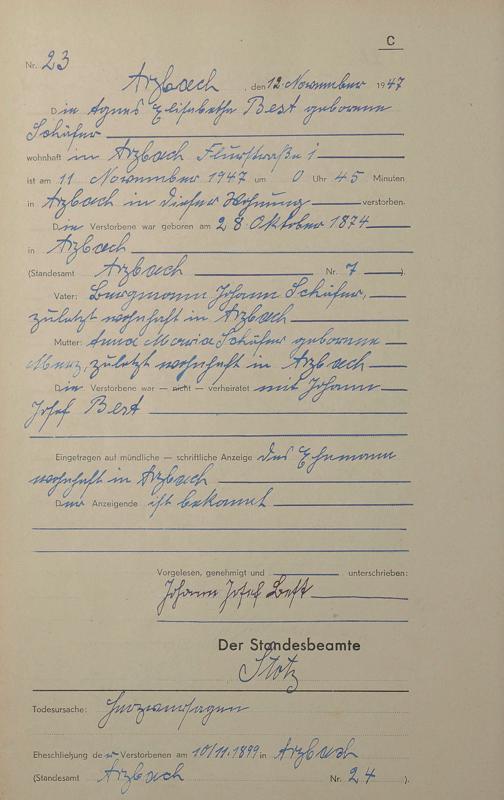 C
Nr. 23
Arzbach, den 12. November 1947
Die Agnes Elisabetha Best geborene
Schäfer
wohnhaft in Arzbach Flurstraße 1
ist am 11. November 1947 um 0 Uhr 45 Minuten
in Arzbach in dieser Wohnung verstorben.
Die Verstorbene war geboren am 28. Oktober 1874
in Arzbach
(Standesamt Arzbach Nr. 7 ).
Vater: Bergmann Johann Schäfer,
zuletzt wohnhaft in Arzbach
Mutter: Anna Maria Schäfer geborene
Merz, zuletzt wohnhaft in Arzbach
Die Verstorbene war — nicht — verheiratet mit Johann
Josef Best
Eingetragen auf mündliche — schriftliche Anzeige des Ehemann
wohnhaft in Arzbach
Der Anzeigende ist bekannt
Vorgelesen, genehmigt und unterschrieben:
Johann Josef Best
Der Standesbeamte
Stotz
Todesursache: Herzversagen
Eheschließung der Verstorbenen am 10/11.1899 in Arzbach
(Standesamt Arzbach Nr. 24 ).